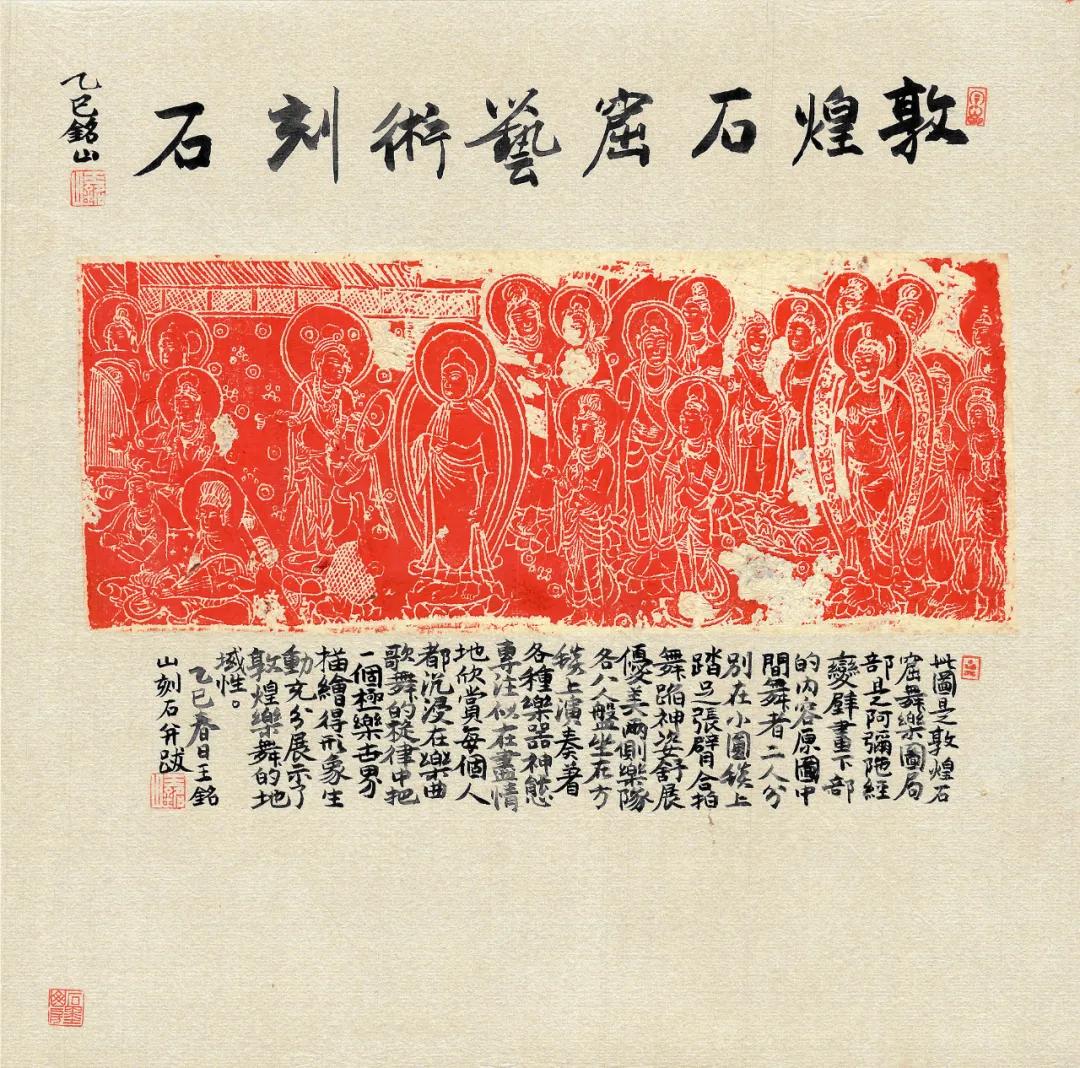 敦煌石窟藝術刻石
乙巳銘山
此圖是敦煌石
窟舞樂圖局
部是阿彌陁經
變壁畫下部
的内容原圖中
間舞者二人分
別在小圓毯上
踏足張臂合拍
舞蹈神姿舒展
優美兩側樂隊
各八人盤坐在方
毯上演奏着
各種樂器神態
專注似在盡情
地欣賞每個人
都沉浸在樂曲
歌舞的旋律中把
一個極樂世界
描繪得形象生
動充分展示了
敦煌樂舞的地
域性。
乙巳春日王銘
山刻石并跋